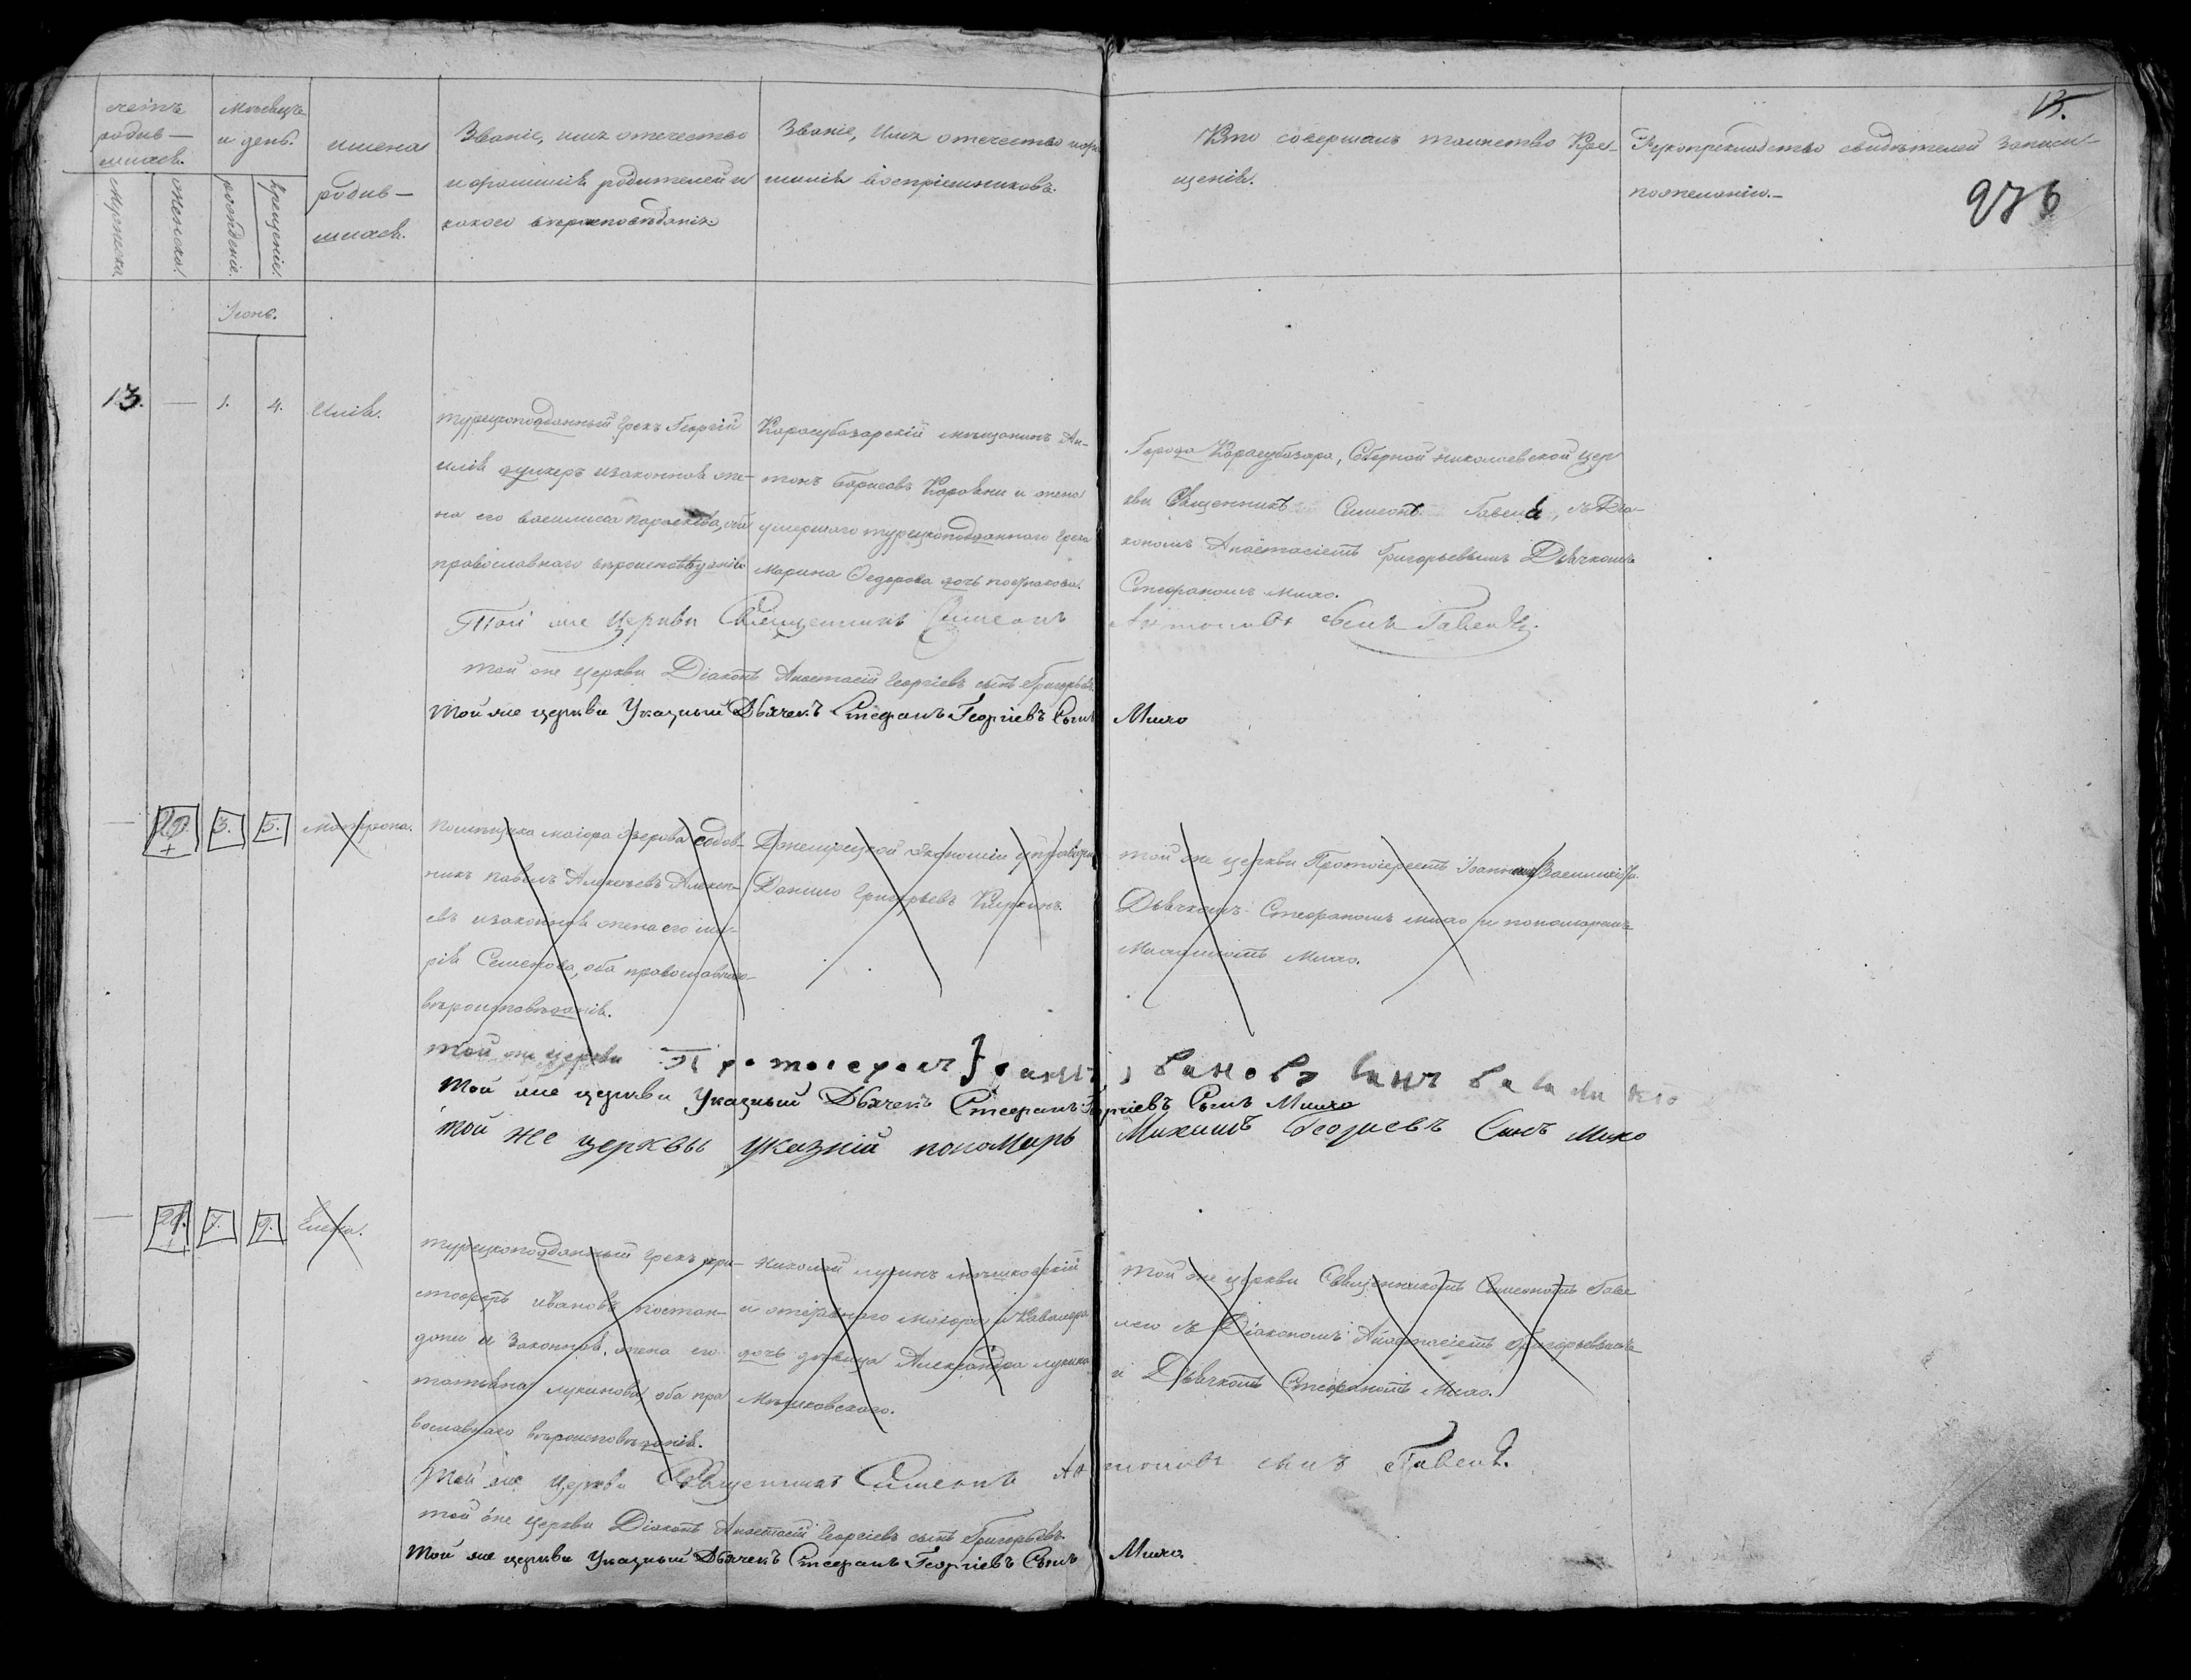 13.
276
счетъ родив-шихся.
Мужеска.
Женска.
Мѣсяцъ и день.
рожденіе.
крещеніе.
имена
родив-
шихся.
Званіе, имя отечество
и фамилія родителей и
какого вѣроисповѣданія
Званіе, Имя отечество и фа-
милія воспріемниковъ.
Кто совершалъ таинство Кре-
щенія.
Рукоприкладство свидѣтелей записи
по желанію.
Іюнь.
13. — 1. 4. Илія.
турецкоподданный грекъ Георгій
изаконная же-
на его василисса оба
православнаго вѣроисповѣданія
Карасубазарскій мѣщанинъ Ан-
тонъ Борисовъ и жена
умершаго турецкоподданнаго грека
Марина Федорова дочь
Города Карасубазара, Соборной николаевской цер
кви Священникъ Симеонъ Гавела, съ Діа-
кономъ Анастасіемъ Григорьевымъ Дьячкомъ
Стефаномъ Михо.
Той же Церкви Священникъ Симеонъ Антоновъ сынъ Гавела.
той же церкви Діаконъ Анастасій Георгіевъ сынъ Григорьевъ
Той же церкви Указный Дьячекъ Стефанъ Георгіевъ Сынъ Михо
— 20. 3. 5. Матрона.
помѣщика маіора садов-
никъ павелъ Алексѣевъ Алексѣ-
евъ изаконная жена его ма-
рія Семенова, оба православнаго
вѣроисповѣданія.
экономіи
Данило Григорьевъ
той же церкви Протоіереемъ Іоанномъ
Дьячкомъ Стефаномъ михо и пономаремъ
Михаиломъ Михо.
той же церкви Протоіерей Іоаннъ
Той же церкви Указный Дьячекъ Стефанъ Георгіевъ Сынъ Михо
той же церквы указній пономарь Михаилъ Георгіевъ Синъ михо
— 21. 7. 9. Елена.
турецкоподданный грекъ хри-
стофоръ ивановъ
и законная, жена его
татіана лукинова, оба пра
вославнаго вѣроисповѣданія.
николай лукинъ мѣшковскій
и маіора и Кавалера
дочь дѣвица Александра лукина
Мѣшковскаго.
той же церкви Священникомъ Симеономъ Гаве
лею съ Діакономъ Анастасіемъ Григорьевымъ
и Дьячкомъ Стефаномъ Михо.
Той же Церкви Священникъ Симеонъ Антоновъ сынъ Гавела.
той же Церкви Діаконъ Анастасій Георгіевъ сынъ Григорьевъ.
Той же церкви Указный Дьячекъ Стефанъ Георгіевъ Сынъ Михо